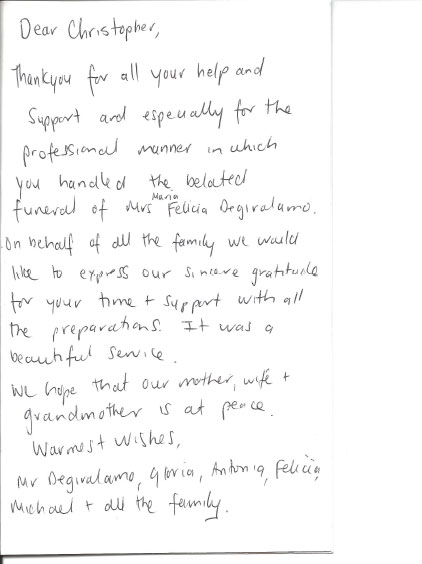 Dear Christopher,
Thankyou for all your help and
Support and especially for the
professional manner in which
you handled the belated
funeral of Mrs Maria Felicia Degiralamo.
On behalf of all the family we would
like to express our sincere gratitude
for your time + support with all
the preparations. It was a
beautiful service.
We hope that our mother, wife +
grandmother is at peace.
Warmest Wishes,
Mr Degiralamo, Gloria, Antonia, Felicia,
Michael + all the family.